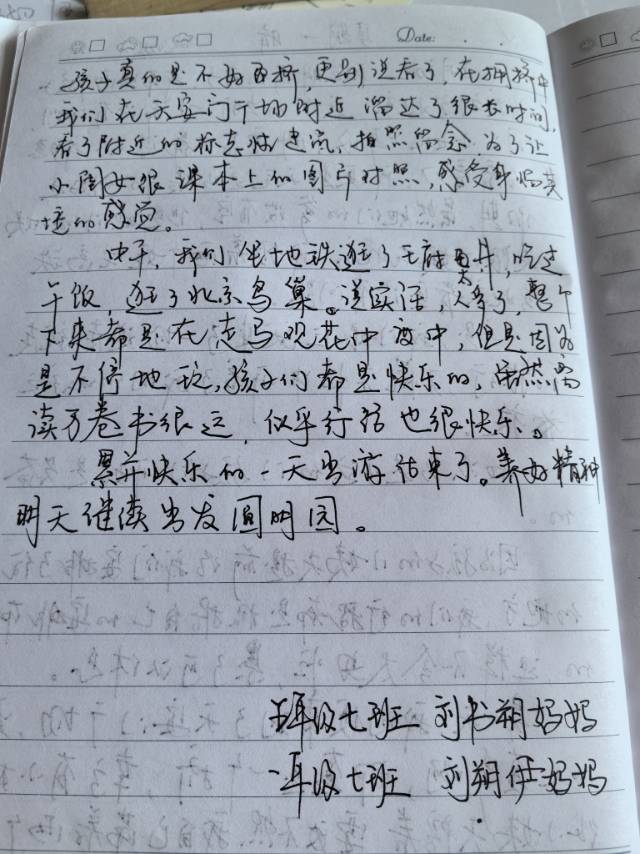 Date:
孩子真的是不好再挤,更别说看了,在拥挤中
我们在天安门广场附近溜达了很长时间,
看了附近的标志性建筑,拍照留念 为了让
小闺女跟课本上的图片对照,感受身临其
境的感觉。
中午,我们坐地铁逛了王府井,吃过
午饭,逛了北京鸟巢。说实话,人太多了,整个
下来都是在走马观花中度中,但是因为
是不停地玩,孩子们都是快乐的,虽然离
读万卷书很远,似乎行路也很快乐。
累并快乐的一天出游结束了。养好精神
明天继续出发圆明园。
五年级七班 刘书朔妈妈
一年级七班 刘朔伊妈妈